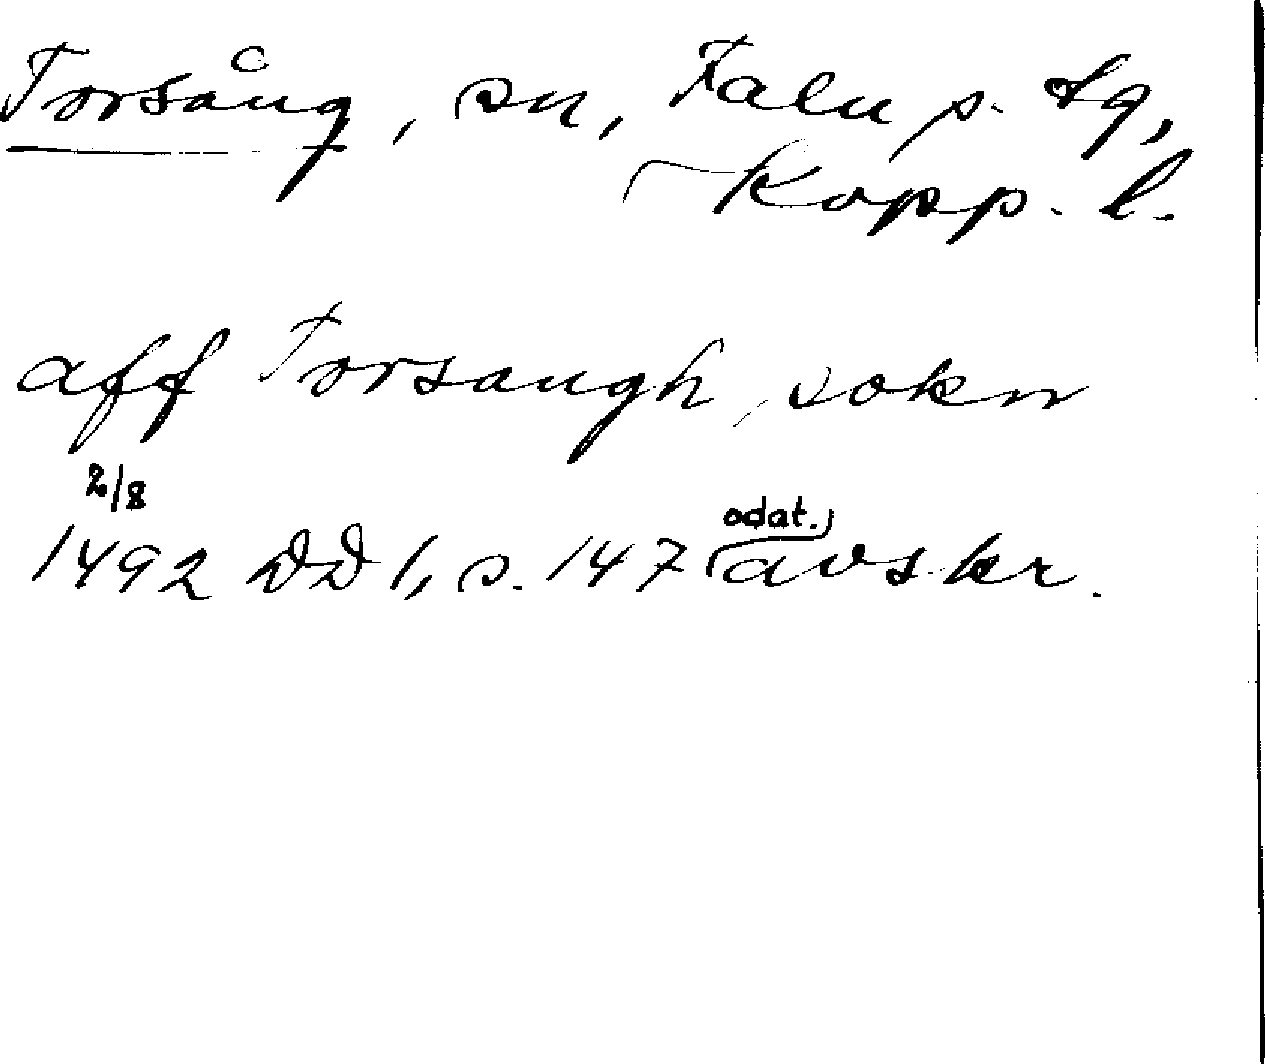 Torsång, sn, Falu s. tg,
Kopp. l.
aff Torsaugh, sokn
2/8
odat.
1492 DD 1, s. 147 avskr.